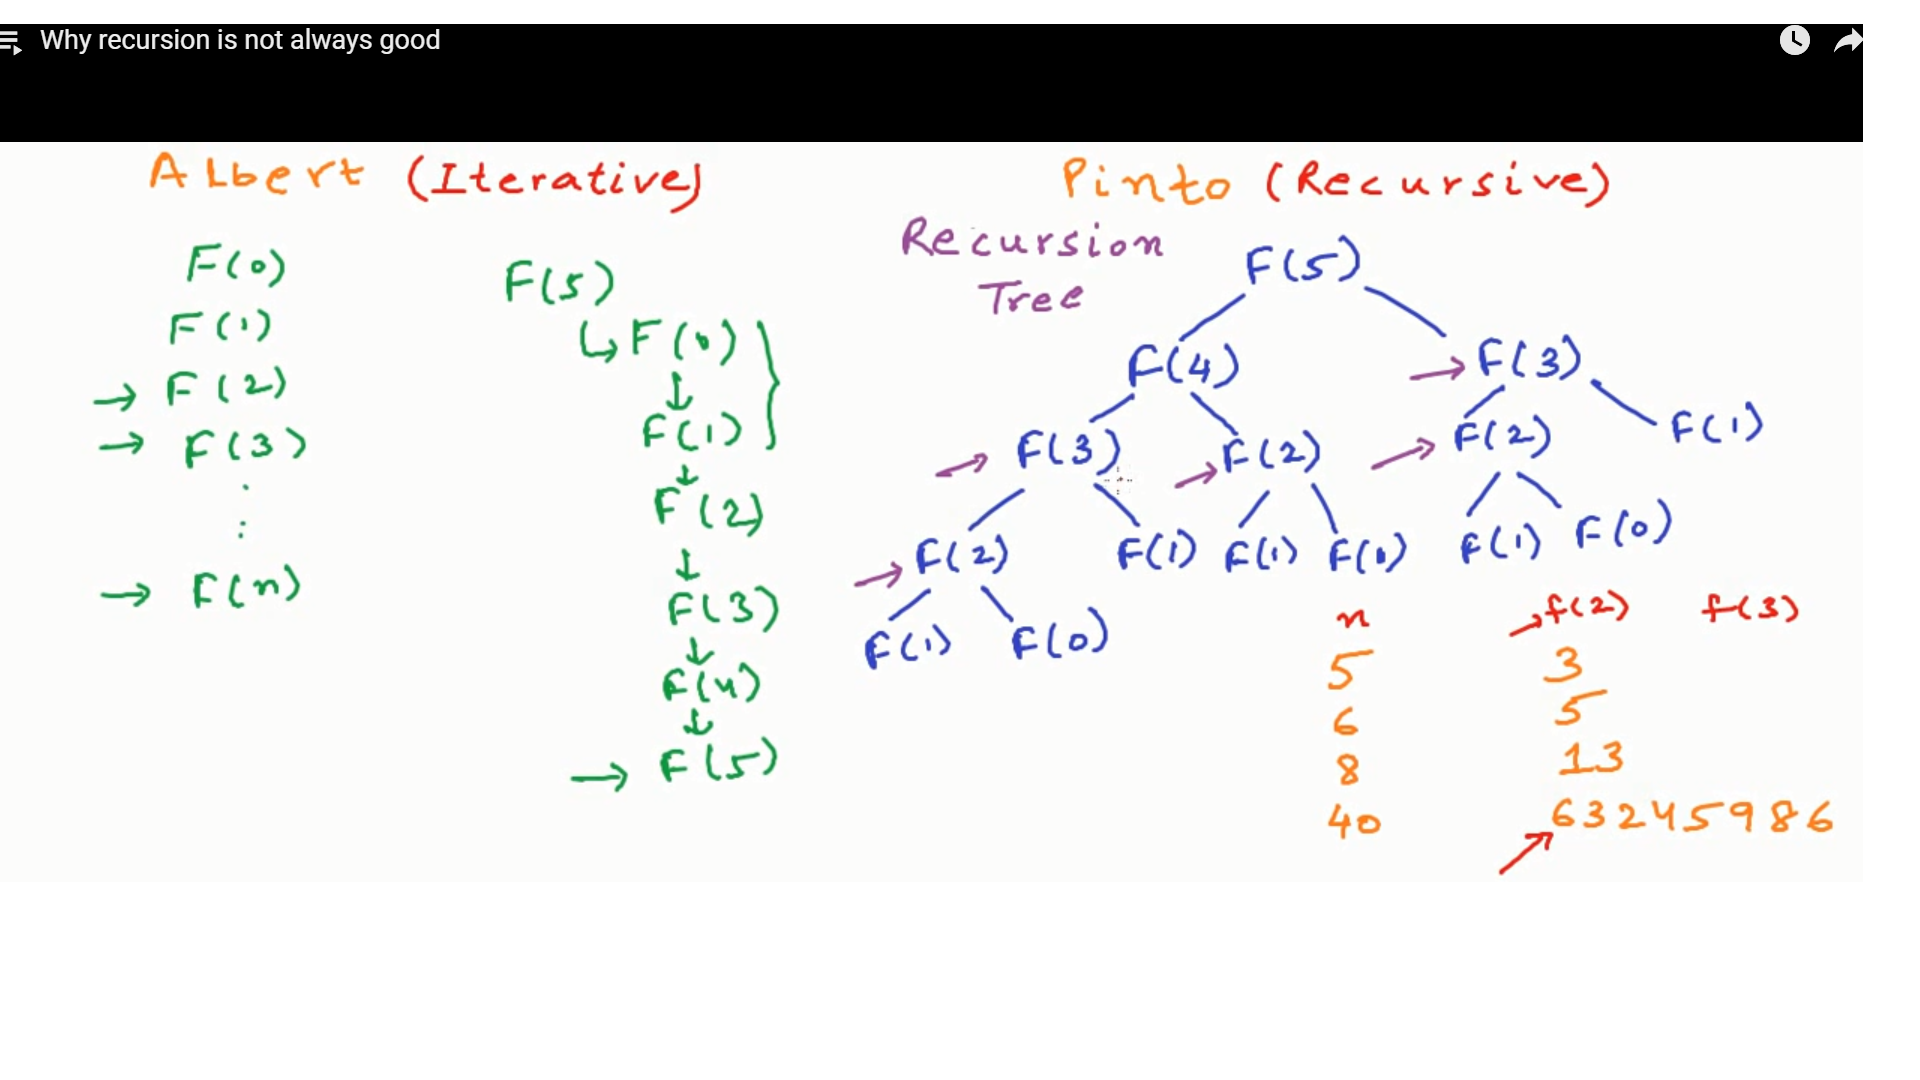 Why recursion is not always good
Albert (Iterative)
F(0)
F(1)
→ F(2)
→ F(3)
:
→ F(n)
F(5)
↳ F(0) }
↓
F(1)
↓
F(2)
↓
F(3)
↓
F(4)
↓
→ F(5)
Pinto (Recursive)
Recursion
Tree
F(5)
F(4) → F(3)
→ F(3) → F(2) → F(2) F(1)
→ F(2) F(1) F(1) F(0) F(1) F(0)
F(1) F(0)
n → f(2) f(3)
5 3
6 5
8 13
40 → 63245986